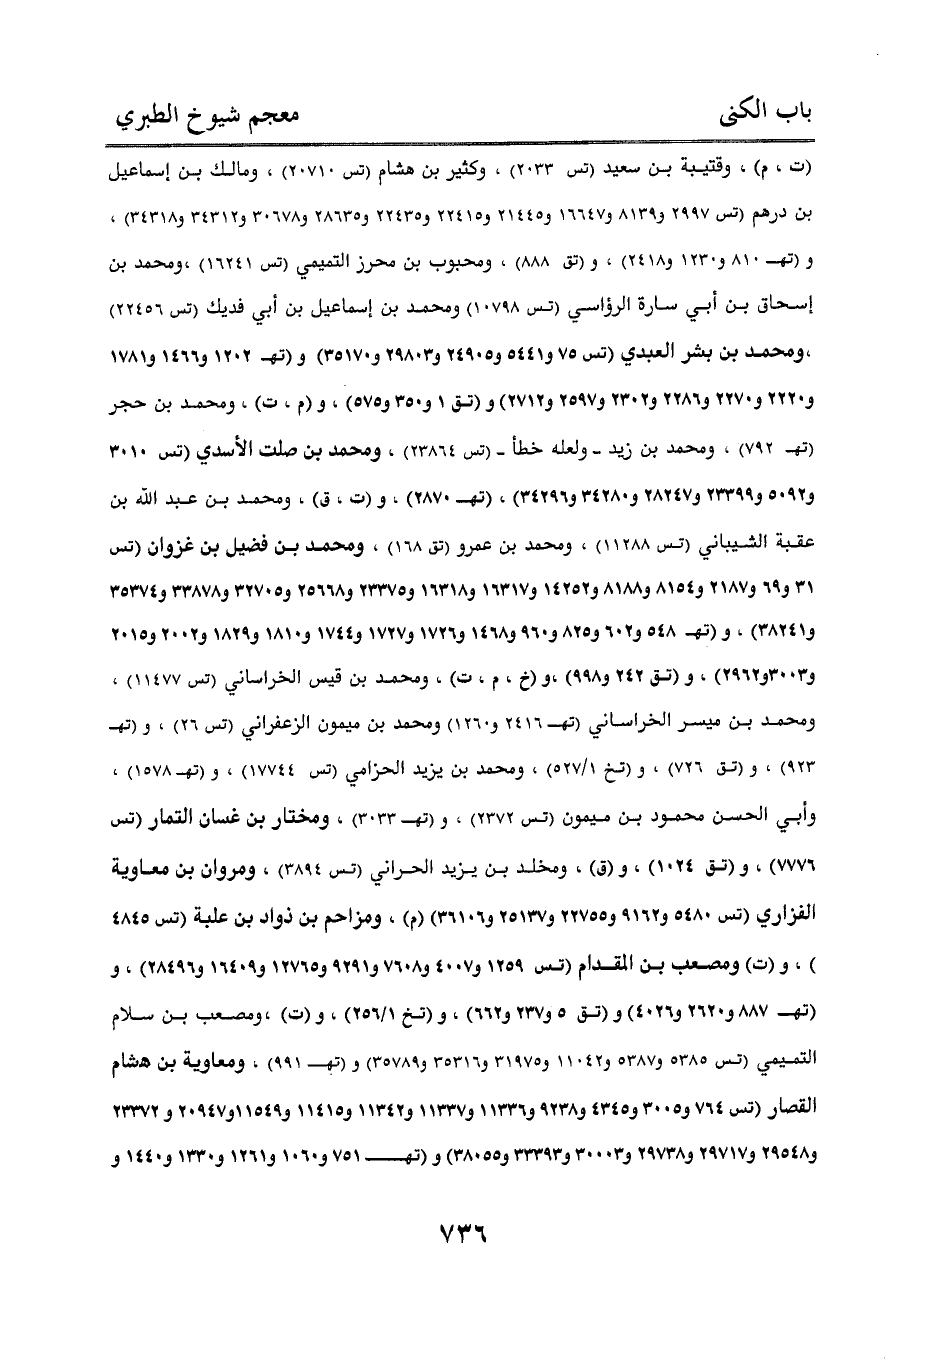 باب الكنى
معجم شيوخ الطبري
(ت ، م) ، وقتيبة بن سعيد (تس ٢٠٣٣) ، وكثير بن هشام (تس ٢٠٧١٠) ، ومالك بن إسماعيل
بن درهم (تس ٢٩٩٧ و٨١٣٩ و١٦٦٤٧ و٢١٤٤٥ و٢٢٤١٥ و٢٢٤٣٥ و٢٨٦٣٥ و٣٠٦٧٨ و٣٤٣١٢ و٣٤٣١٨) ،
و (تهـ ٨١٠ و١٢٣٠ و٢٤١٨) ، و (تق ٨٨٨) ، ومحبوب بن محرز التميمي (تس ١٦٢٤١) ،ومحمد بن
إسحاق بن أبي سارة الرؤاسي (تس ١٠٧٩٨) ومحمد بن إسماعيل بن أبي فديك (تس ٢٢٤٥٦)
،ومحمد بن بشر العبدي (تس ٧٥ و٥٤٤١ و٢٤٩٠٥ و٢٩٨٠٣ و٣٥١٧٠) و (تهـ ١٢٠٢ و١٤٦٦ و١٧٨١
و٢٢٢٠ و٢٢٧٠ و٢٢٨٦ و٢٣٠٢ و٢٥٩٧ و٢٧١٢) و (تق ١ و٣٥٠ و٥٧٥) ، و (م ، ت) ، ومحمد بن حجر
(تهـ ٧٩٢) ، ومحمد بن زيد ـ ولعله خطأ ـ (تس ٢٣٨٦٤) ، ومحمد بن صلت الأسدي (تس ٣٠١٠
و٥٠٩٢ و٢٣٣٩٩ و٢٨٢٤٧ و٣٤٢٨٠ و٣٤٢٩٦) ، (تهـ ٢٨٧٠) ، و (ت ، ق) ، ومحمد بن عبد الله بن
عقبة الشيباني (تس ١١٢٨٨) ، ومحمد بن عمرو (تق ١٦٨) ، ومحمد بن فضيل بن غزوان (تس
٣١ و٦٩ و٢١٨٧ و٨١٥٤ و٨١٨٨ و١٤٢٥٢ و١٦٣١٧ و١٦٣١٨ و٢٣٣٧٥ و٢٥٦٦٨ و٣٢٧٠٥ و٣٣٨٧٨ و٣٥٣٧٤
و٣٨٢٤١) ، و (تهـ ٥٤٨ و٦٠٢ و٨٢٥ و٩٦٠ و١٤٦٨ و١٧٢٦ و١٧٢٧ و١٧٤٤ و١٨١٠ و١٨٢٩ و٢٠٠٢ و٢٠١٥
و٣٠٠٣و٢٩٦٢) ، و (تق ٢٤٢ و٩٩٨) ،و (خ ، م ، ت) ، ومحمد بن قيس الخراساني (تس ١١٤٧٧) ،
ومحمد بن ميسر الخراساني (تهـ ٢٤١٦ و١٢٦٠) ومحمد بن ميمون الزعفراني (تس ٢٦) ، و (تهـ
٩٢٣) ، و (تق ٧٢٦) ، و (تخ ٥٢٧/١) ، ومحمد بن يزيد الحزامي (تس ١٧٧٤٤) ، و (تهـ ١٥٧٨) ،
وأبي الحسن محمود بن ميمون (تس ٢٣٧٢) ، و (تهـ ٣٠٣٣) ، ومختار بن غسان التمار (تس
٧٧٧٦) ، و (تق ١٠٢٤) ، و (ق) ، ومخلد بن يزيد الحراني (تس ٣٨٩٤) ، ومروان بن معاوية
الفزاري (تس ٥٤٨٠ و٩١٦٢ و٢٢٧٥٥ و٢٥١٣٧ و٣٦١٠٦) (م) ، ومزاحم بن ذواد بن علبة (تس ٤٨٤٥
) ، و (ت) ومصعب بن المقدام (تس ١٢٥٩ و٤٠٠٧ و٧٦٠٨ و٩٢٩١ و١٢٧٦٥ و١٦٤٠٩ و٢٨٤٩٦) ، و
(تهـ ٨٨٧ و٢٦٢٠ و٤٠٢٦) و (تق ٥ و٢٣٧ و٦٦٢) ، و (تخ ٢٥٦/١) ، و (ت) ،ومصعب بن سلام
التميمي (تس ٥٣٨٥ و٥٣٨٧ و١١٠٤٢ و٣١٩٧٥ و٣٥٣١٦ و٣٥٧٨٩) و (تهـ ٩٩١) ، ومعاوية بن هشام
القصار (تس ٧٦٤ و٣٠٠٥ و٤٣٤٥ و٩٢٣٨ و١١٣٣٦ و١١٣٣٧ و١١٣٤٢ و١١٤١٥ و١١٥٤٩و٢٠٩٤٧ و ٢٣٣٧٢
و٢٩٥٤٨ و٢٩٧١٧ و٢٩٧٣٨ و٣٠٠٠٣ و٣٣٣٩٣ و٣٨٠٥٥) و (تهـ ٧٥١ و١٠٦٠ و١٢٦١ و١٣٣٠ و١٤٤٠ و
٧٣٦